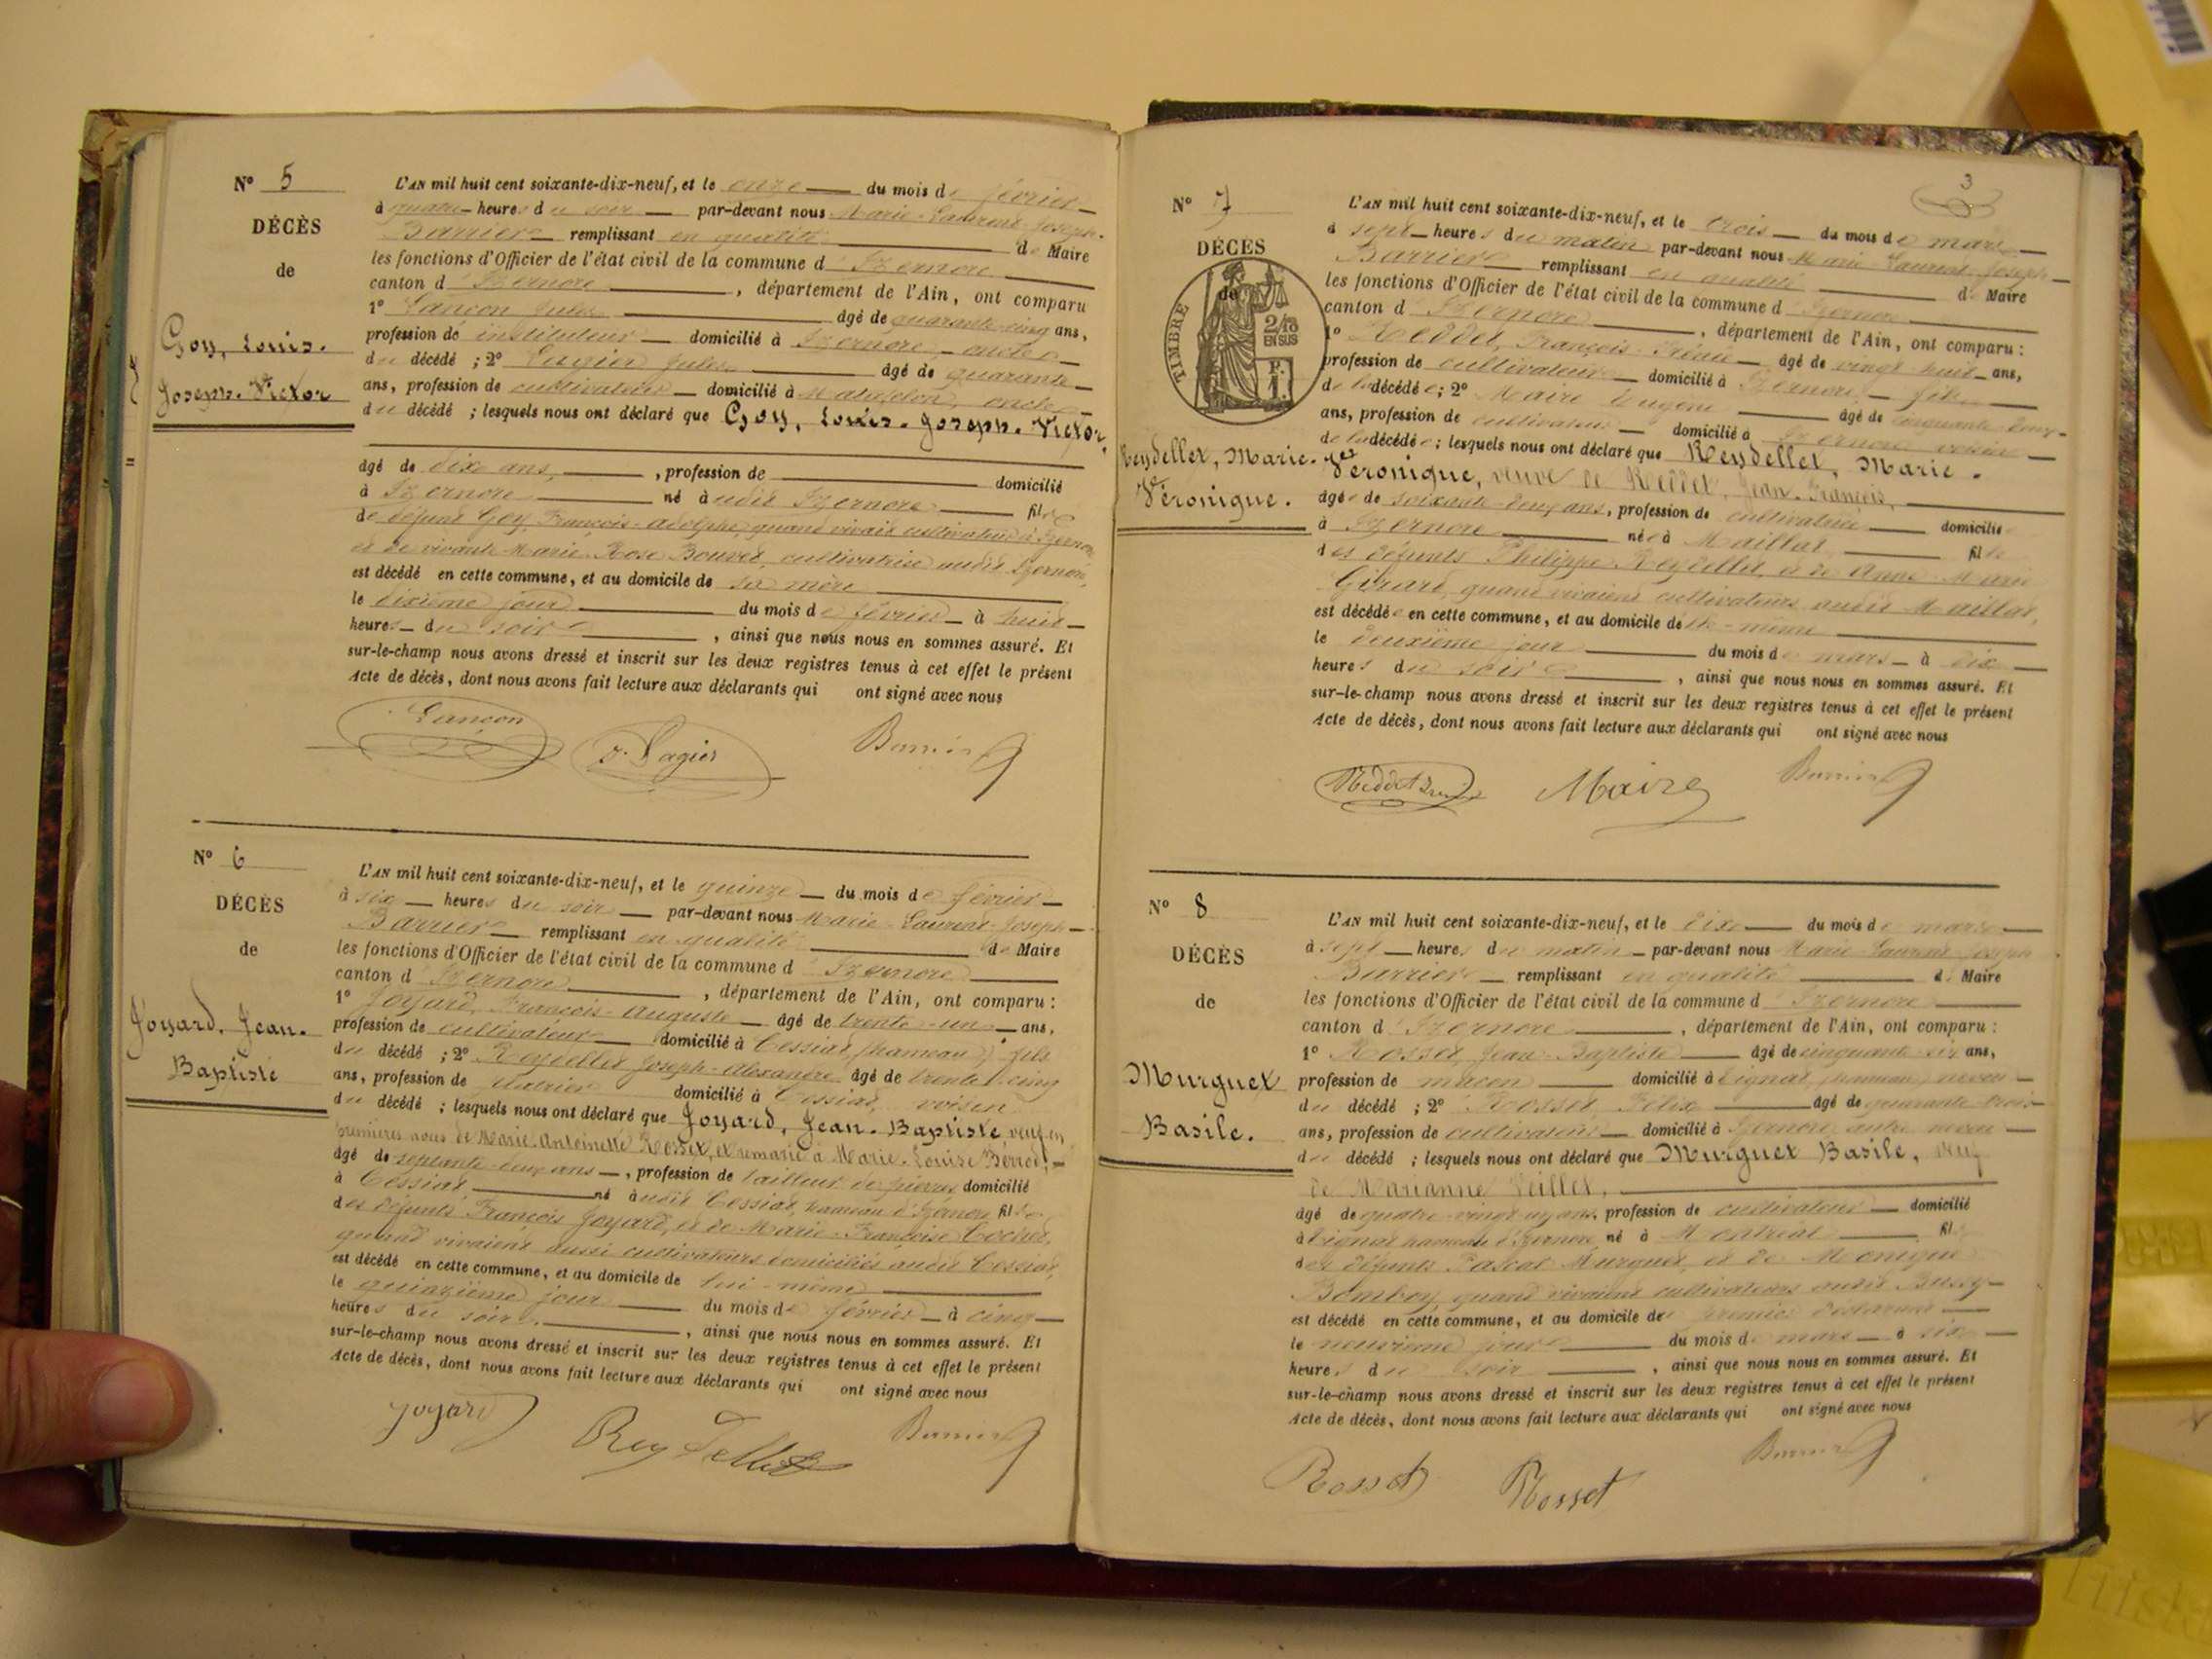 N° 5
DÉCÈS
de
Goy, Louis.
Joseph. Victor
L'AN mil huit cent soixante-dix-neuf, et le onze du mois de février
à quatre heures du soir par-devant nous Marie-Laurent-Joseph
Barrier remplissant en qualité de Maire
les fonctions d'Officier de l'état civil de la commune d'Izernore
canton d'Izernore, département de l'Ain, ont comparu
1° Lançon Jules âgé de quarante-cinq ans,
profession de instituteur domicilié à Izernore, oncle
du décédé ; 2° Jules âgé de quarante
ans, profession de cultivateur domicilié à Matafelon, oncle
du décédé ; lesquels nous ont déclaré que Goy, Louis. Joseph. Victor,
âgé de dix ans, profession de domicilié
à Izernore né audit Izernore fils
de défunt Goy François-Adolphe, quand vivait cultivateur à Izernore
et de vivante Marie-Rose Bouvet, cultivatrice audit Izernore,
est décédé en cette commune, et au domicile de sa mère
le dixième jour du mois de février à huit
heures du soir, ainsi que nous nous en sommes assuré. Et
sur-le-champ nous avons dressé et inscrit sur les deux registres tenus à cet effet le présent
Acte de décès, dont nous avons fait lecture aux déclarants qui ont signé avec nous
Lançon
J. Lagier
Barrier
N° 6
DÉCÈS
de
Joyard, Jean.
Baptiste
L'AN mil huit cent soixante-dix-neuf, et le quinze du mois de février
à six heures du soir par-devant nous Marie-Laurent-Joseph
Barrier remplissant en qualité de Maire
les fonctions d'Officier de l'état civil de la commune d'Izernore
canton d'Izernore, département de l'Ain, ont comparu :
1° Joyard, François-Auguste âgé de trente-un ans,
profession de cultivateur domicilié à Cessiat (hameau), fils
du décédé ; 2° Reydellet Joseph-Alexandre âgé de trente-cinq
ans, profession de domicilié à Cessiat, voisin
du décédé ; lesquels nous ont déclaré que Joyard, Jean-Baptiste, veuf en
premières noces de Marie-Antoinette Rosset, et remarié à Marie-Louise
âgé de septante-deux ans, profession de tailleur de pierres domicilié
à Cessiat né audit Cessiat, hameau d'Izernore fils
des défunts François Joyard, et de Marie-Françoise Cochet,
quand vivaient aussi cultivateurs domiciliés audit Cessiat,
est décédé en cette commune, et au domicile de lui-même
le quinzième jour du mois de février à cinq
heures du soir, ainsi que nous nous en sommes assuré. Et
sur-le-champ nous avons dressé et inscrit sur les deux registres tenus à cet effet le présent
Acte de décès, dont nous avons fait lecture aux déclarants qui ont signé avec nous
Joyard
Reydellet
Barrier
3
N° 7
DÉCÈS
de
TIMBRE
2/10
EN SUS
Reydellet, Marie.
Véronique.
L'AN mil huit cent soixante-dix-neuf, et le trois du mois de mars
à sept heures du matin par-devant nous Marie-Laurent-Joseph
Barrier remplissant en qualité de Maire
les fonctions d'Officier de l'état civil de la commune d'Izernore
canton d'Izernore, département de l'Ain, ont comparu :
1° Reddet, François âgé de vingt-huit ans,
profession de cultivateur domicilié à Izernore, fils
de la décédée ; 2° Maire Eugène âgé de cinquante-deux
ans, profession de cultivateur domicilié à Izernore voisin
de la décédée ; lesquels nous ont déclaré que Reydellet, Marie.
Véronique, veuve de Reddet, Jean-François,
âgée de soixante-deux ans, profession de cultivatrice domiciliée
à Izernore née à Maillat fille
des défunts Philippe Reydellet, et de Anne-Marie
Girard, quand vivaient cultivateurs audit Maillat,
est décédée en cette commune, et au domicile d'elle-même
le deuxième jour du mois de mars à dix
heures du soir, ainsi que nous nous en sommes assuré. Et
sur-le-champ nous avons dressé et inscrit sur les deux registres tenus à cet effet le présent
Acte de décès, dont nous avons fait lecture aux déclarants qui ont signé avec nous
Reddet
Maire
Barrier
N° 8
DÉCÈS
de
Murguet
Basile.
L'AN mil huit cent soixante-dix-neuf, et le dix du mois de mars
à sept heures du matin par-devant nous Marie-Laurent-Joseph
Barrier remplissant en qualité de Maire
les fonctions d'Officier de l'état civil de la commune d'Izernore
canton d'Izernore, département de l'Ain, ont comparu :
1° Rosset Jean-Baptiste âgé de cinquante-six ans,
profession de maçon domicilié à Tignat, hameau, neveu
du décédé ; 2° Rosset Félix âgé de quarante-trois
ans, profession de cultivateur domicilié à Izernore, autre neveu
du décédé ; lesquels nous ont déclaré que Murguet Basile, veuf
de Marianne Veillet,
âgé de quatre-vingt-un ans, profession de cultivateur domicilié
à Tignat hameau d'Izernore né à Montréal fils
des défunts Pascal Murguet, et de Monique
Bomboy, quand vivaient cultivateurs audit
est décédé en cette commune, et au domicile du premier déclarant
le neuvième jour du mois de mars à six
heures du soir, ainsi que nous nous en sommes assuré. Et
sur-le-champ nous avons dressé et inscrit sur les deux registres tenus à cet effet le présent
Acte de décès, dont nous avons fait lecture aux déclarants qui ont signé avec nous
Rosset
Rosset
Barrier